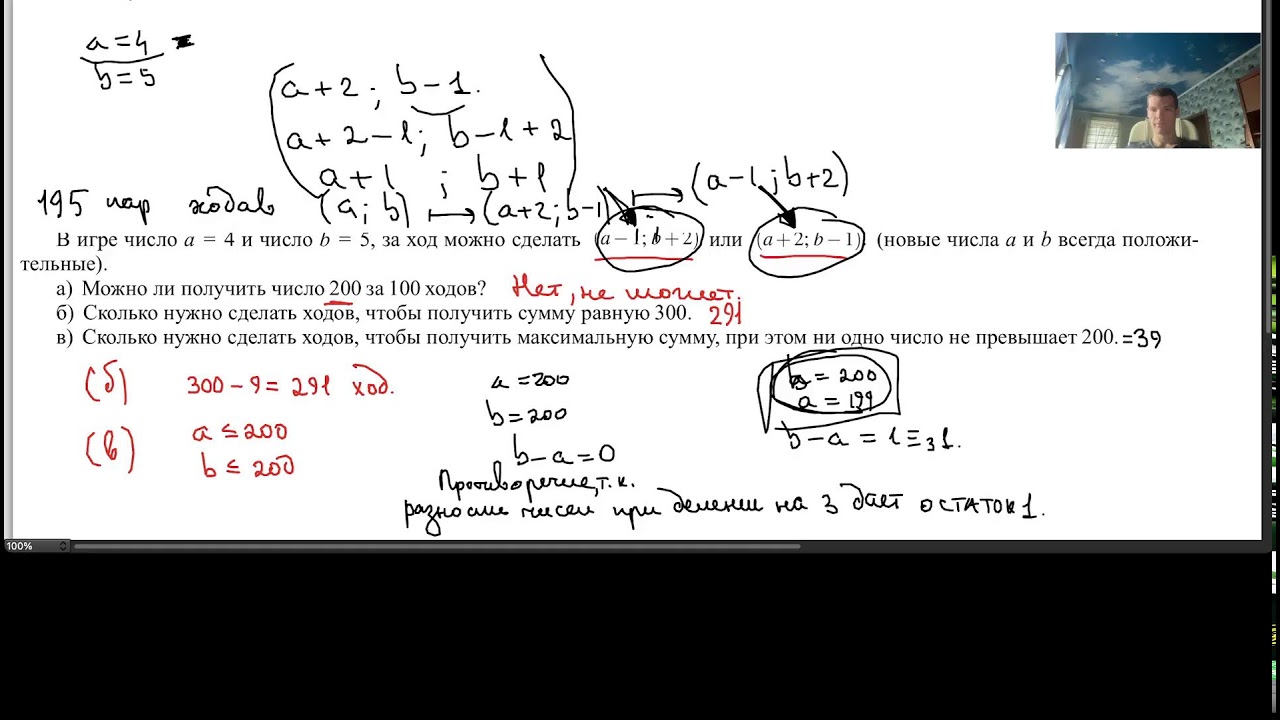 a = 4
b = 5
a + 2 ; b - 1.
a + 2 - 1; b - 1 + 2
a + 1 ; b + 1
195 пар ходов (a; b) ↦ (a+2; b-1) ↦ (a-1; b+2)
В игре число a = 4 и число b = 5, за ход можно сделать (a − 1; b + 2) или (a + 2; b − 1). (новые числа a и b всегда положи-
тельные).
а) Можно ли получить число 200 за 100 ходов? Нет, не может.
б) Сколько нужно сделать ходов, чтобы получить сумму равную 300. 291
в) Сколько нужно сделать ходов, чтобы получить максимальную сумму, при этом ни одно число не превышает 200. =39
(б) 300 - 9 = 291 ход.
(в) a ≤ 200
b ≤ 200
a = 200
b = 200
b - a = 0
Противоречие, т.к.
разность чисел при делении на 3 дает остаток 1.
b = 200
a = 199
b - a = 1 ≡₃ 1.
100%